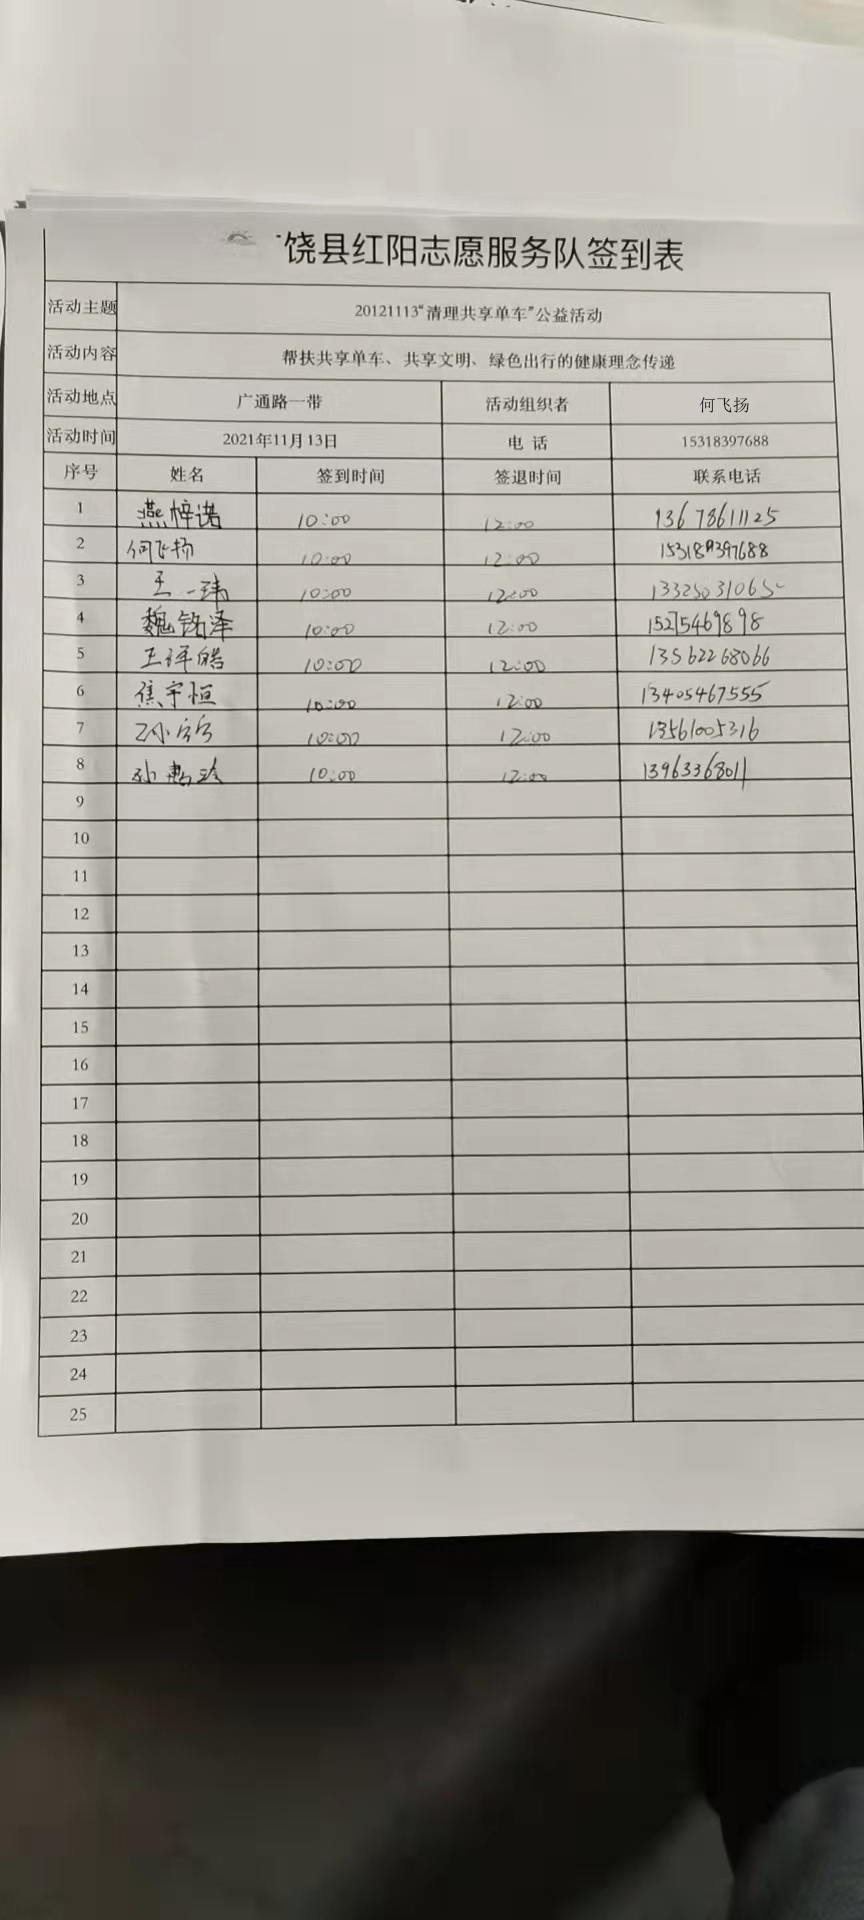 饶县红阳志愿服务队签到表
活动主题 20121113“清理共享单车”公益活动
活动内容 帮扶共享单车、共享文明、绿色出行的健康理念传递
活动地点 广通路一带 活动组织者 何飞扬
活动时间 2021年11月13日 电 话 15318397688
序号 姓名 签到时间 签退时间 联系电话
1 燕梓诺 10:00 12:00 13678611125
2 何飞扬 10:00 12:00 15318397688
3 王一玮 10:00 12:00
4 魏铭泽 10:00 12:00 15275469898
5 王泽皓 10:00 12:00 13562268066
6 焦宇恒 10:00 12:00 13405467555
7 10:00 12:00 13561005316
8 10:00 12:00 13963368011
9
10
11
12
13
14
15
16
17
18
19
20
21
22
23
24
25